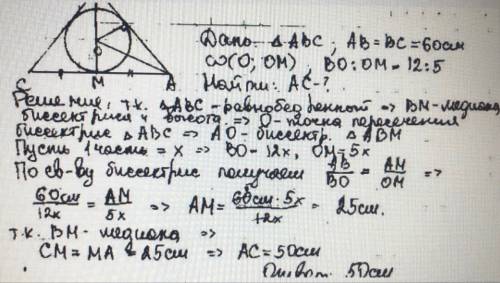 Дано: △ABC; AB=BC=60см
ω(O; OM), BO:OM=12:5
Найти: AC-?
O
C M A
Решение: т.к. △ABC-равнобедренный => BM-медиана
биссектриса и высота => O-точка пересечения
биссектрис △ABC => AO-биссектр. △ABM
Пусть 1 часть = x => BO-12x, OM=5x
По св-ву биссектрис получаем AB/BO = AM/OM =>
60см/12x = AM/5x => AM= 60см·5x/12x = 25см.
т.к. BM-медиана =>
CM=MA=25см => AC=50см
Ответ: 50см